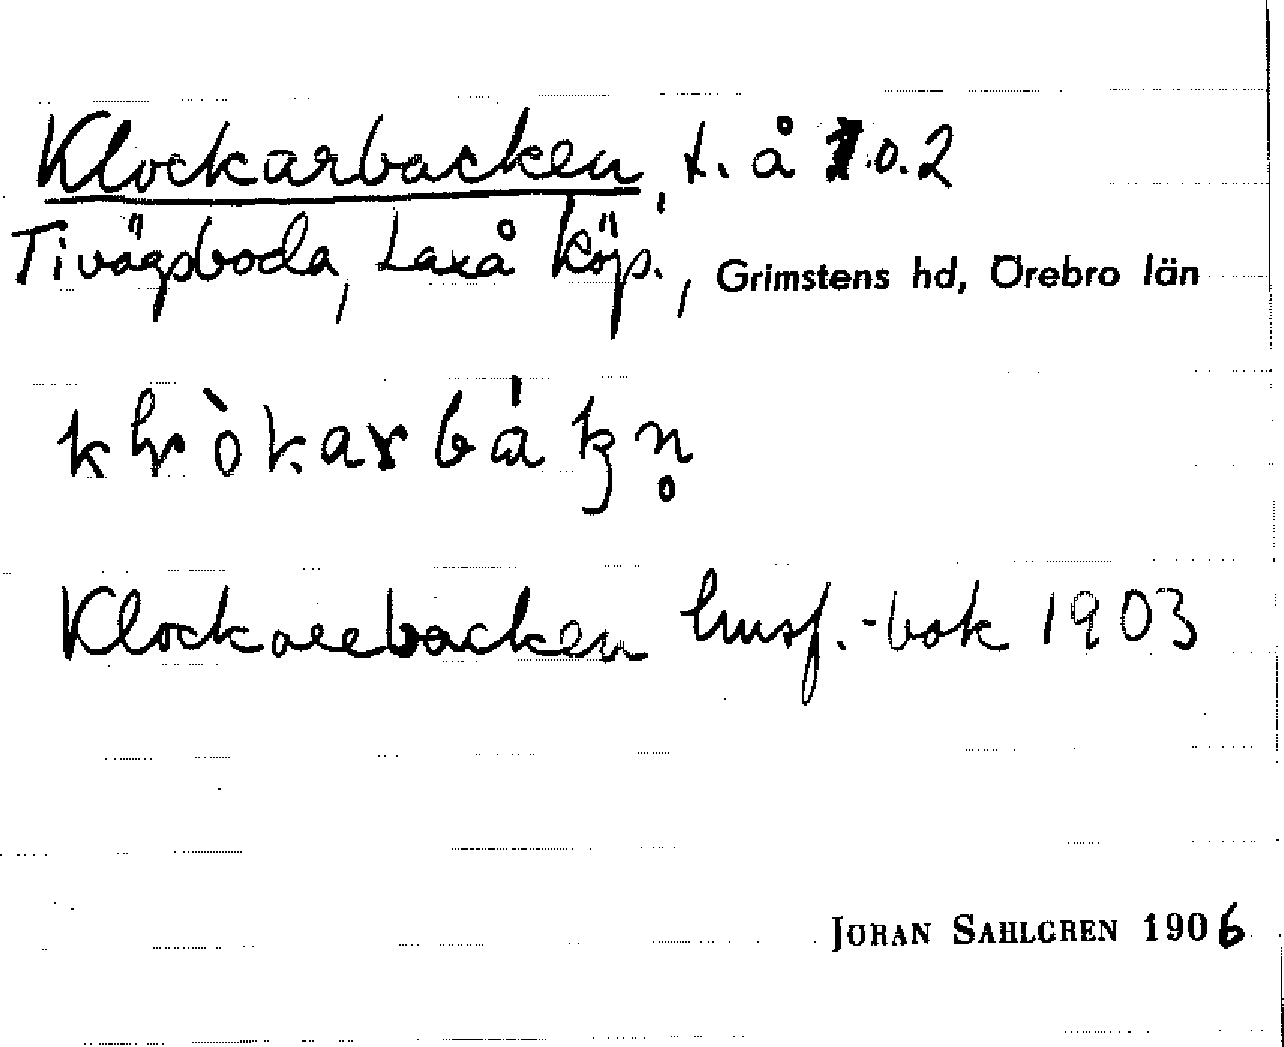 Klockarbacken, t. å 1 o. 2
Tivägsboda, Laxå köp., Grimstens hd, Örebro län
Klockarebacken husf.-bok 1903
JÖRAN SAHLGREN 1906